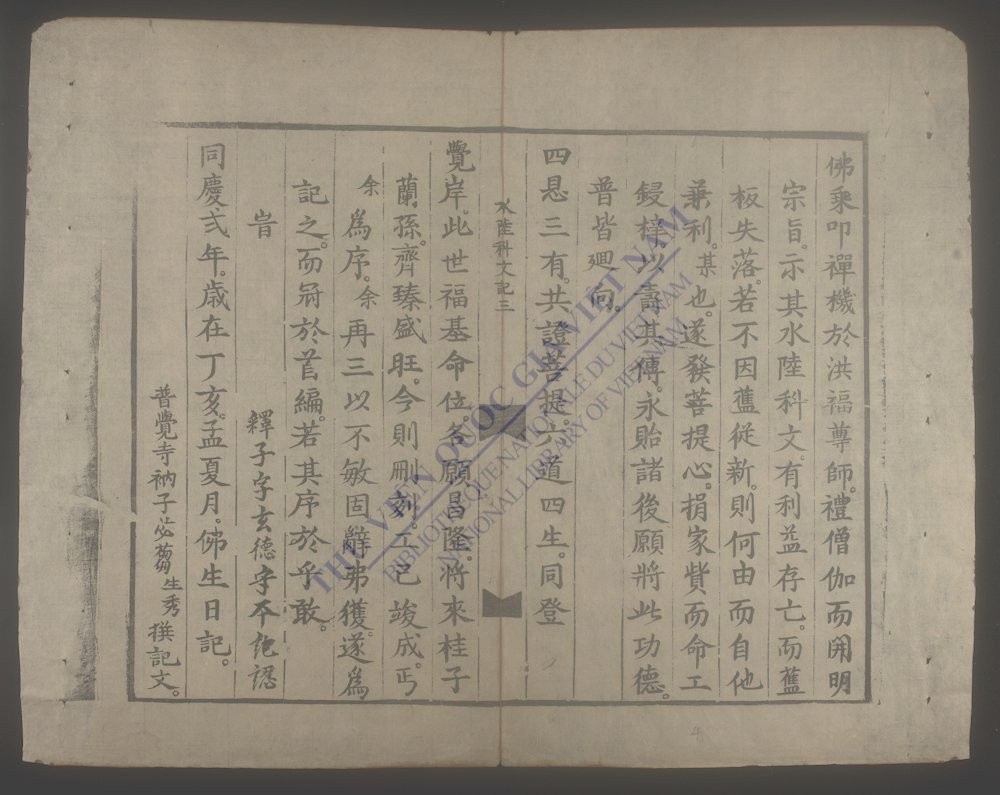 佛乘叩禪機於洪福尊師。禮僧伽而開明
宗旨。示其水陸科文。有利益存亡。而舊
板失落。若不因舊從新。則何由而自他
兼利。某也。遂發菩提心。捐家貲而命工
鋟梓以壽其傳。永貽諸後願將此功德。
普皆廻向。
四恩三有。共證菩提。六道四生。同登
水陸科文記三
覺岸。此世福基命位。各願昌隆。將來桂子
蘭孫。齊臻盛旺。今則刪刻。工已竣成。丐
余為序。余再三以不敏固辭弗獲。遂為
記之。而冠於首編。若其序於乎敢。
旹
釋子字玄德字
同慶弍年。歲在丁亥。孟夏月。佛生日記。
普覺寺衲子苾蒭生秀撰記文。
THƯ VIỆN QUỐC GIA VIỆT NAM
BIBLIOTHEQUE NATIONALE DU VIETNAM
NATIONAL LIBRARY OF VIETNAM